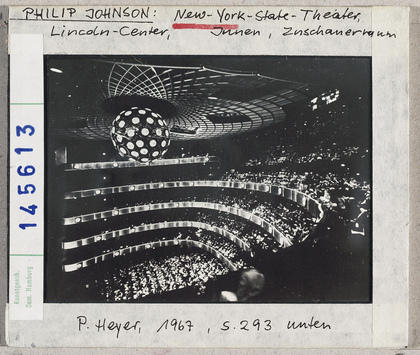 PHILIP JOHNSON: New-York-State-Theater,
Lincoln-Center, Innen, Zuschauerraum
145613
Kunstgesch.
Sem. Hamburg
P. Heyer, 1967, S. 293 unten